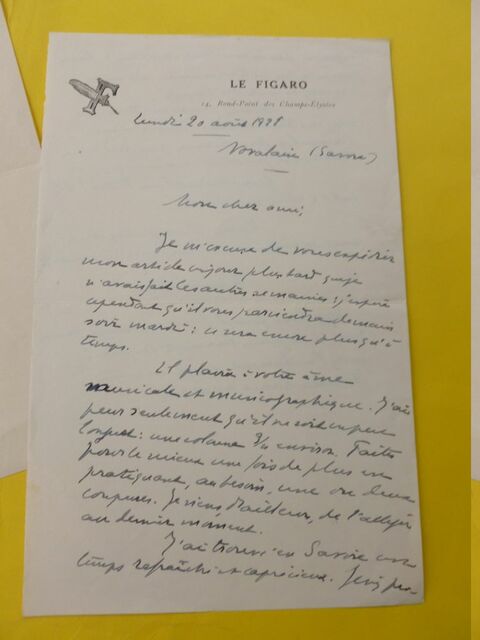 LE FIGARO
14, Rond-Point des Champs-Élysées
Lundi 20 août 1928
(Savoie)
Mon cher ami,
Je m'excuse de vous expédier
mon article un jour plus tard que je
n'avais fait les autres semaines ; j'espère
cependant qu'il vous parviendra demain
soir mardi : ce sera encore plus qu'à
temps.
Il plaira à votre âme
musicale et musicographique. J'ai
peur seulement qu'il ne soit un peu
longuet : une colonne 3/4 environ. Faites
pour le mieux une fois de plus en
pratiquant, au besoin, une ou deux
coupures. Je viens, d'ailleurs, de l'alléger
au dernier moment.
J'ai trouvé en Savoie un
temps rafraîchi et capricieux. Je